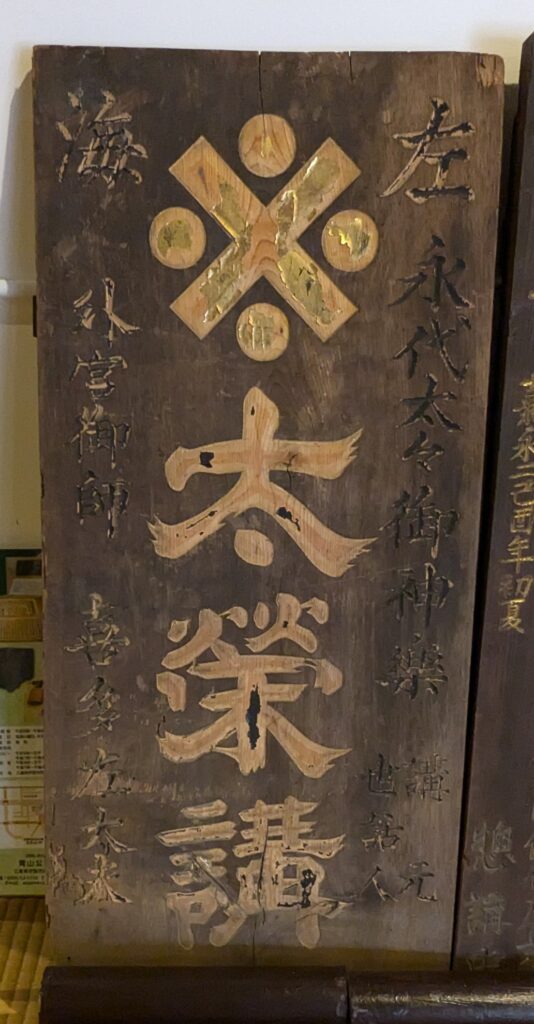 嘉永二己酉年初夏
左 永代太々御神樂 講元
世話人
太榮講
海 外宮御師 喜多左大夫